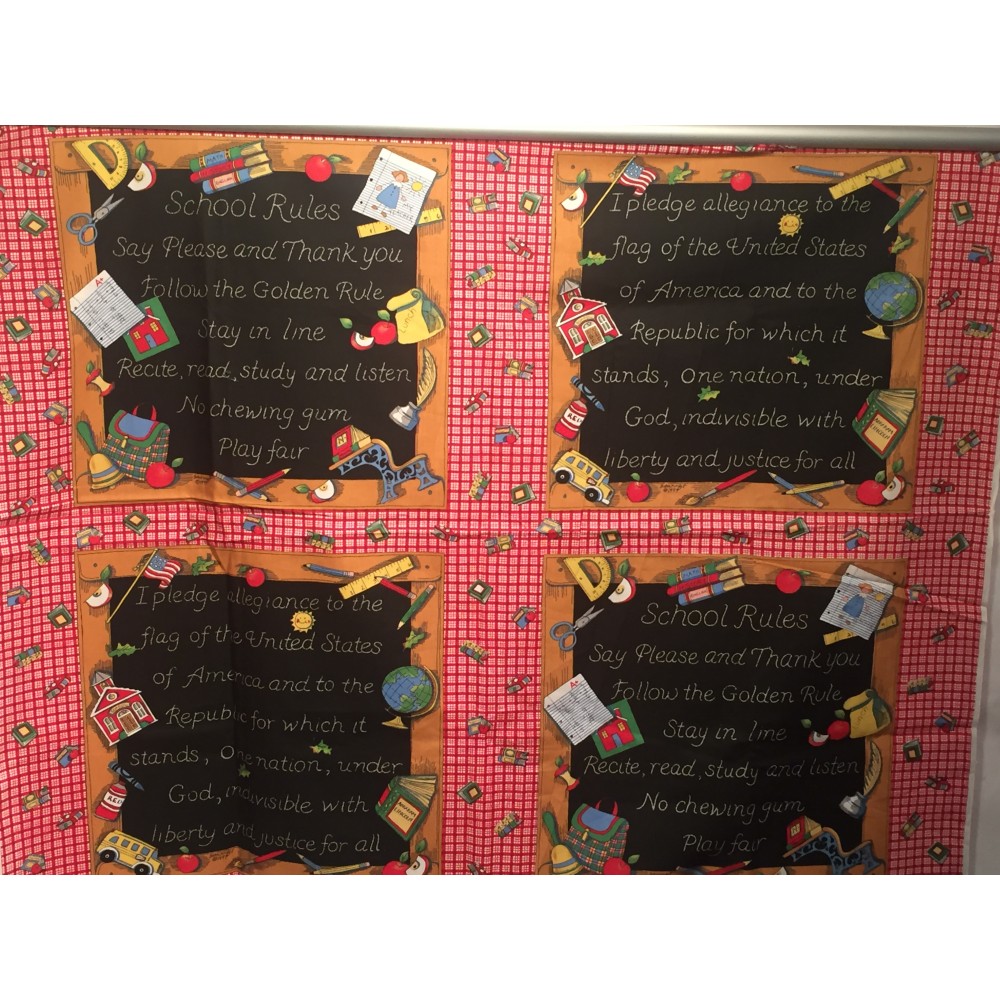 School Rules
Say Please and Thank you
Follow the Golden Rule
Stay in line
Recite, read, study and listen
No chewing gum
Play fair
I pledge allegiance to the
flag of the United States
of America and to the
Republic for which it
stands, One nation, under
God, indivisible with
liberty and justice for all
I pledge allegiance to the
flag of the United States
of America and to the
Republic for which it
stands, One nation, under
God, indivisible with
liberty and justice for all
School Rules
Say Please and Thank you
Follow the Golden Rule
Stay in line
Recite, read, study and listen
No chewing gum
Play fair